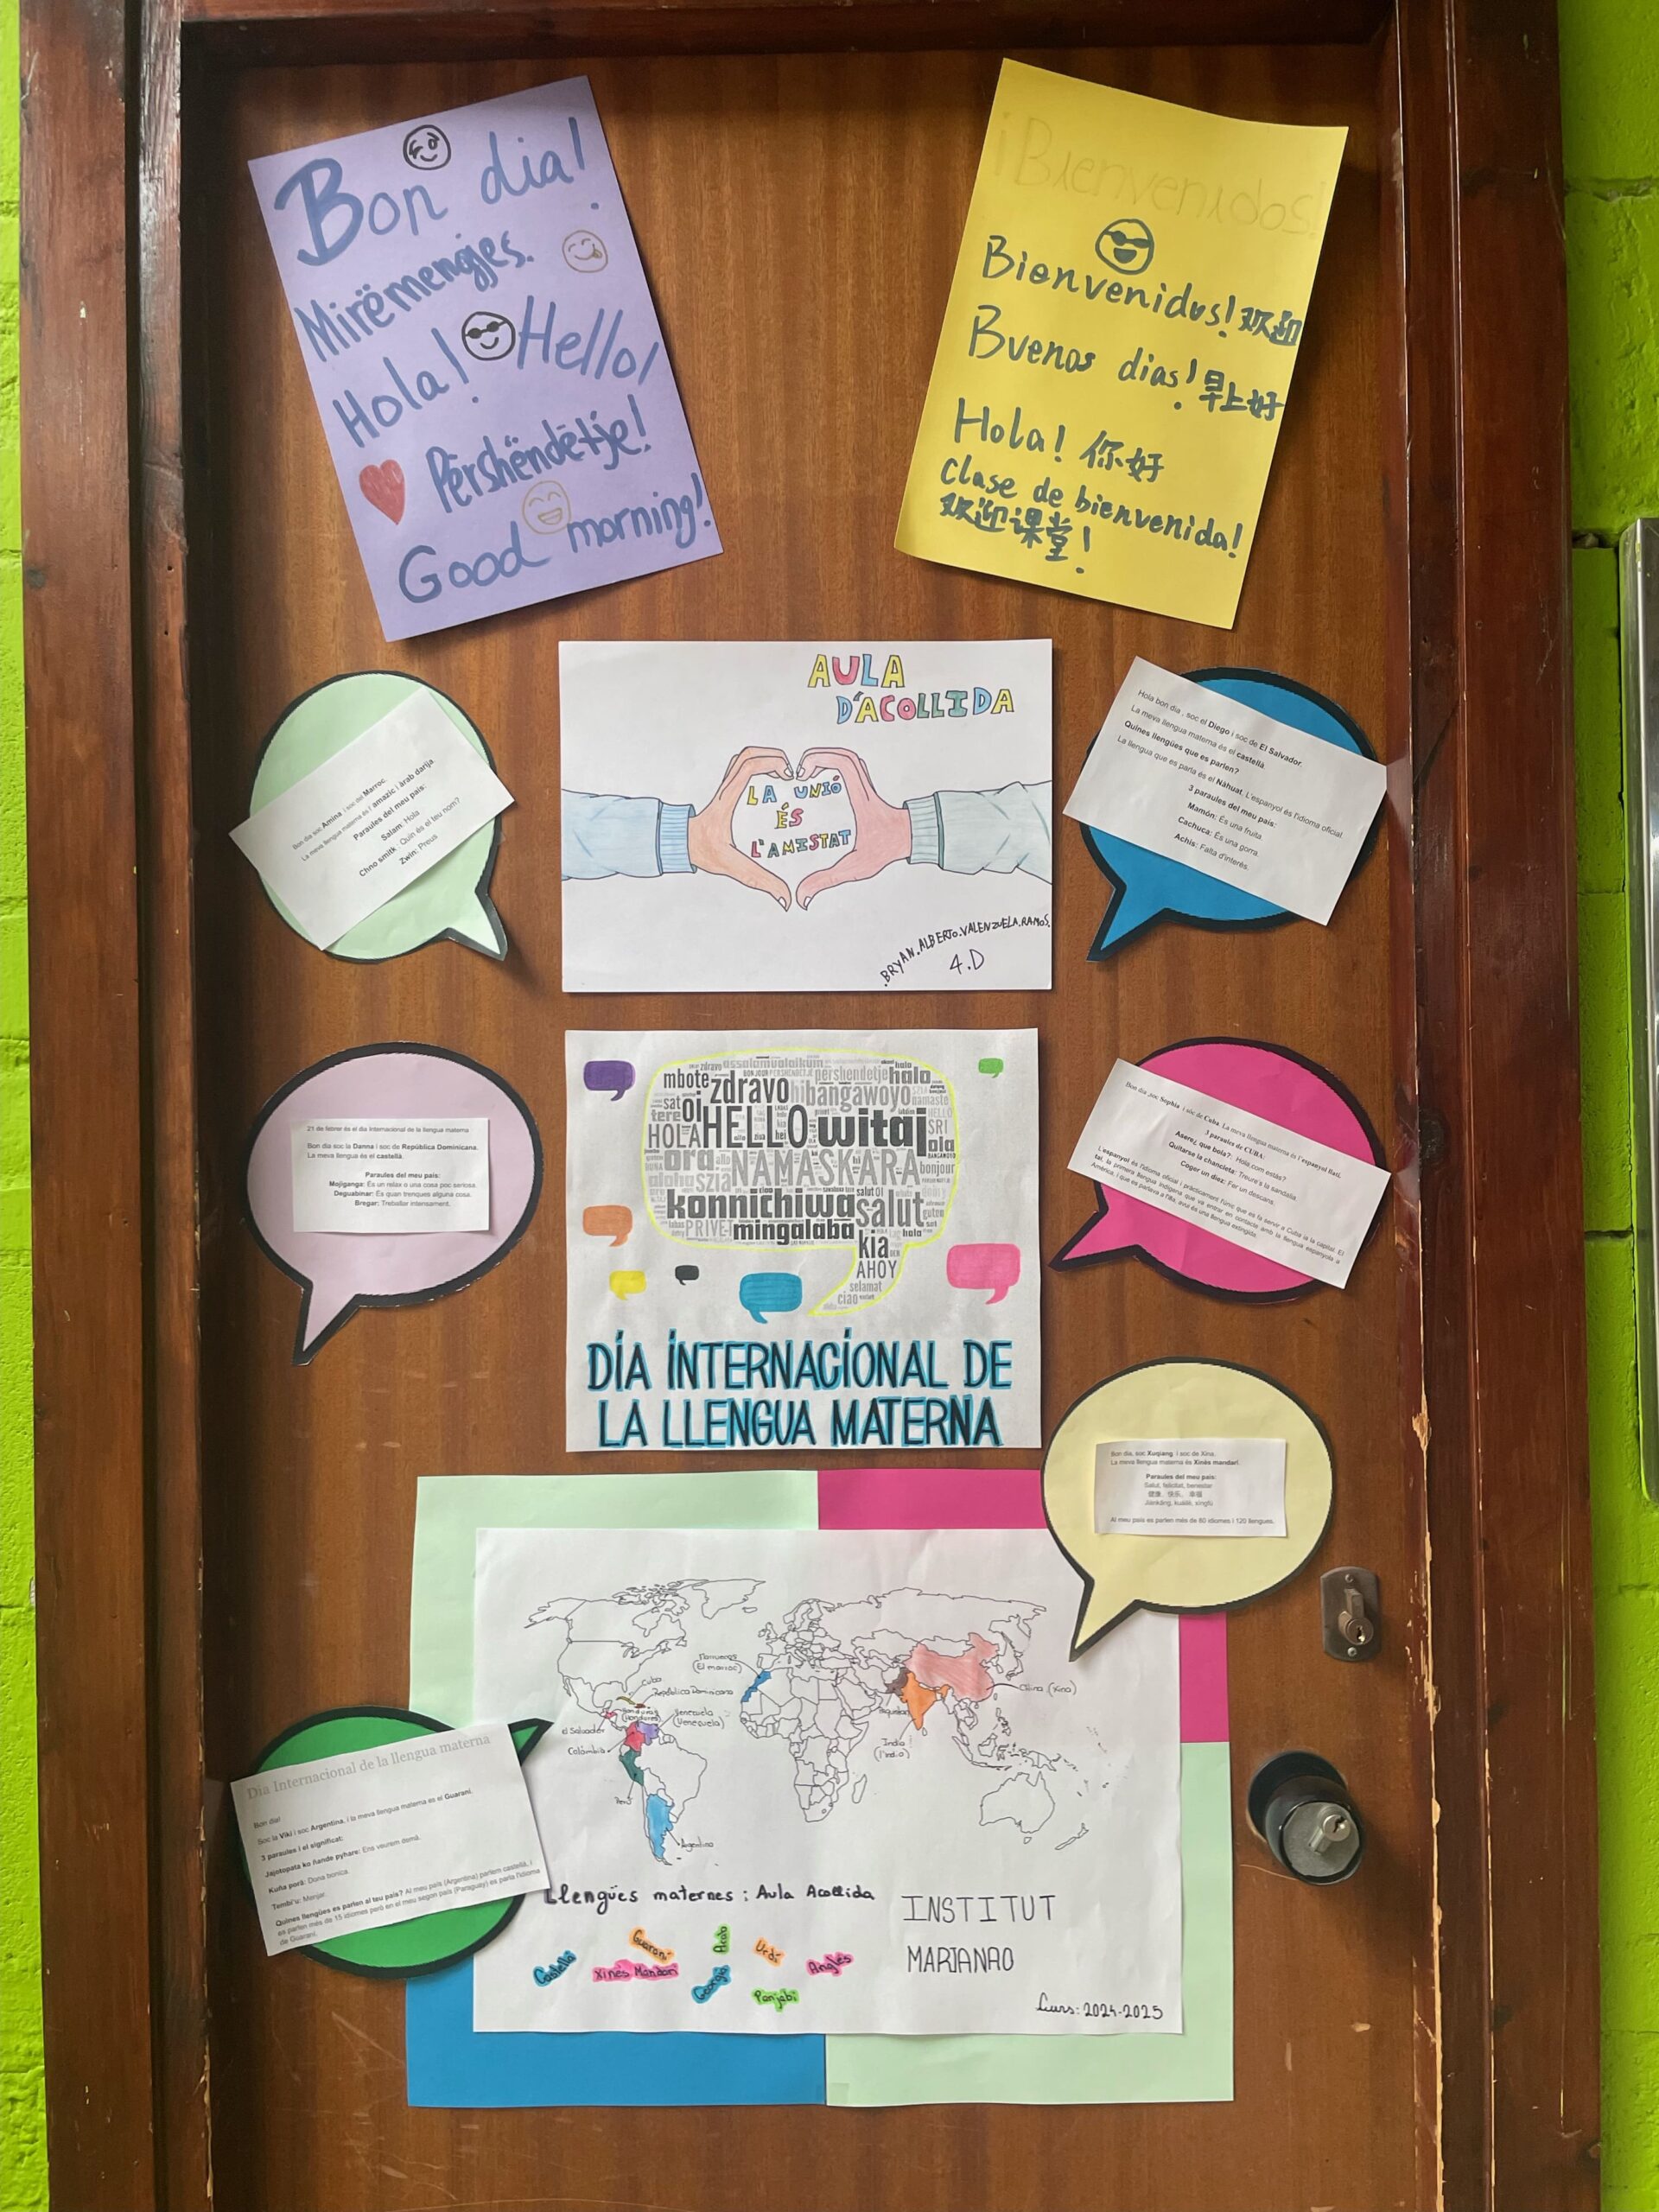 Bon dia!
Mirëmengjes.
Hola! Hello!
Përshëndëtje!
Good morning!
¡Bienvenidos!
Bienvenidos! 欢迎
Buenos dias! 早上好
Hola! 你好
Clase de bienvenida!
欢迎课堂!
AULA
D'ACOLLIDA
LA UNIÓ
ÉS
L'AMISTAT
.BRYAN.ALBERTO.VALENZUELA.RAMOS.
4.D
Bon dia soc Amina i soc del Marroc.
La meva llengua materna és l'amazic i àrab darija
Paraules del meu país:
Salam: Hola
Chno smitk: Quin és el teu nom?
Zwin: Preus
Hola bon dia , soc el Diego i soc de El Salvador.
La meva llengua materna és el castellà.
Quines llengües que es parlen?
La llengua que es parla és el Nàhuat. L'espanyol és l'idioma oficial.
3 paraules del meu país:
Mamón: És una fruita.
Cachuca: És una gorra.
Achis: Falta d'interés.
21 de febrer és el dia internacional de la llengua materna
Bon dia soc la Danna i soc de República Dominicana.
La meva llengua és el castellà.
Paraules del meu país:
Mojiganga: És un relax o una cosa poc seriosa.
Deguabinar: És quan trenques alguna cosa.
Bregar: Treballar intensament.
assalamualaikum
mbote zdravo hi pershendetje hala
bangawoyo namaste
sat oi HELLO witaj SRI
tere HOLA ola
ora NAMASKARA bonjour
aloha szia
konnichiwa salut
PRIVET mingalaba hola
kia
AHOY
selamat
ciao
DÍA INTERNACIONAL DE
LA LLENGUA MATERNA
Bon dia ,soc Sophia i sóc de Cuba. La meva llengua materna és l'espanyol llatí.
3 paraules de CUBA:
Asere¿ que bola?: Hola,com estàs?
Quitarse la chancleta: Treure's la sandalia.
Coger un diez: Fer un descans.
L'espanyol és l'idioma oficial i pràcticament l'únic que es fa servir a Cuba ia la capital. El
taí, la primera llengua indígena que va entrar en contacte amb la llengua espanyola a
Amèrica, i que es parlava a l'illa, avui és una llengua extingida.
Bon dia, soc Xuqiang i soc de Xina.
La meva llengua materna és Xinès mandarí.
Paraules del meu país:
Salut, felicitat, benestar
健康、快乐、幸福
Jiànkāng, kuàilè, xìngfú
Al meu país es parlen més de 80 idiomes i 120 llengues.
Marruecos
(El marroc)
Cuba
República Dominicana
Honduras
(Hondures)
Venezuela
(Veneçuela)
El Salvador
Colòmbia
Perú
Argentina
India
(l'india)
China (Xina)
Dia Internacional de la llengua materna
Bon dia!
Soc la Viki i soc Argentina, i la meva llengua materna es el Guaraní.
3 paraules i el significat:
Jajotopata ko ñande pyhare: Ens veurem demà.
Kuña porã: Dona bonica.
Tembi'u: Menjar.
Quines llengües es parlen al teu país? Al meu país (Argentina) parlem castellà, i
es parlen més de 15 idiomes però en el meu segon país (Paraguay) es parla l'idioma
de Guaraní.
Llengües maternes : Aula Acollida
Castellà
Guaraní
Xinès Mandarí
Àrab
Georgià
Urdú
Panjabi
Anglès
INSTITUT
MARIANAO
Curs: 2024-2025